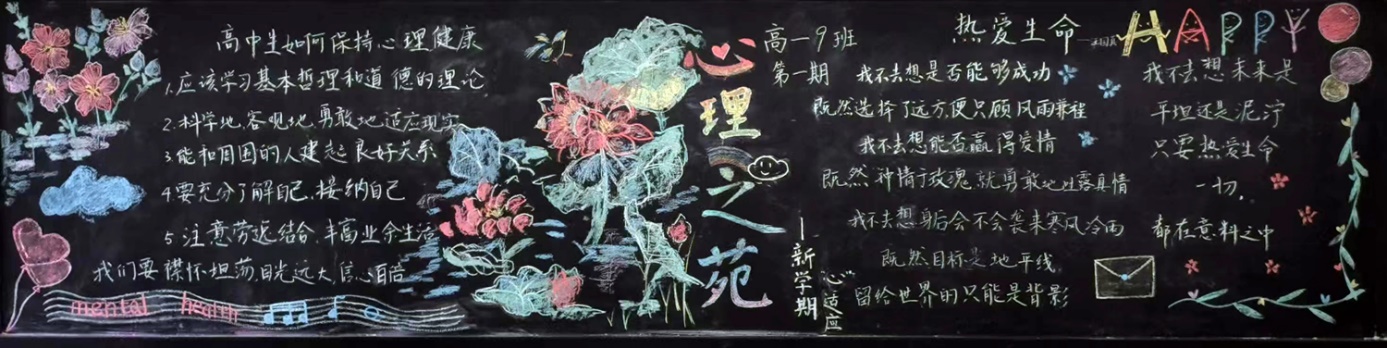 高中生如何保持心理健康
1.应该学习基本哲理和道德的理论
2.科学地、客观地、勇敢地适应现实
3.能和周围的人建起良好关系
4.要充分了解自己、接纳自己
5.注意劳逸结合,丰富业余生活
我们要襟怀坦荡,目光远大,信心百倍
mental health
心理之苑
—新学期
“心”适应
高一9班
第一期
热爱生命
HAPPY
我不去想是否能够成功
既然选择了远方,便只顾风雨兼程
我不去想能否赢得爱情
既然钟情于玫瑰,就勇敢地吐露真情
我不去想身后会不会袭来寒风冷雨
既然目标是地平线
留给世界的只能是背影
我不去想未来是
平坦还是泥泞
只要热爱生命
一切,
都在意料之中